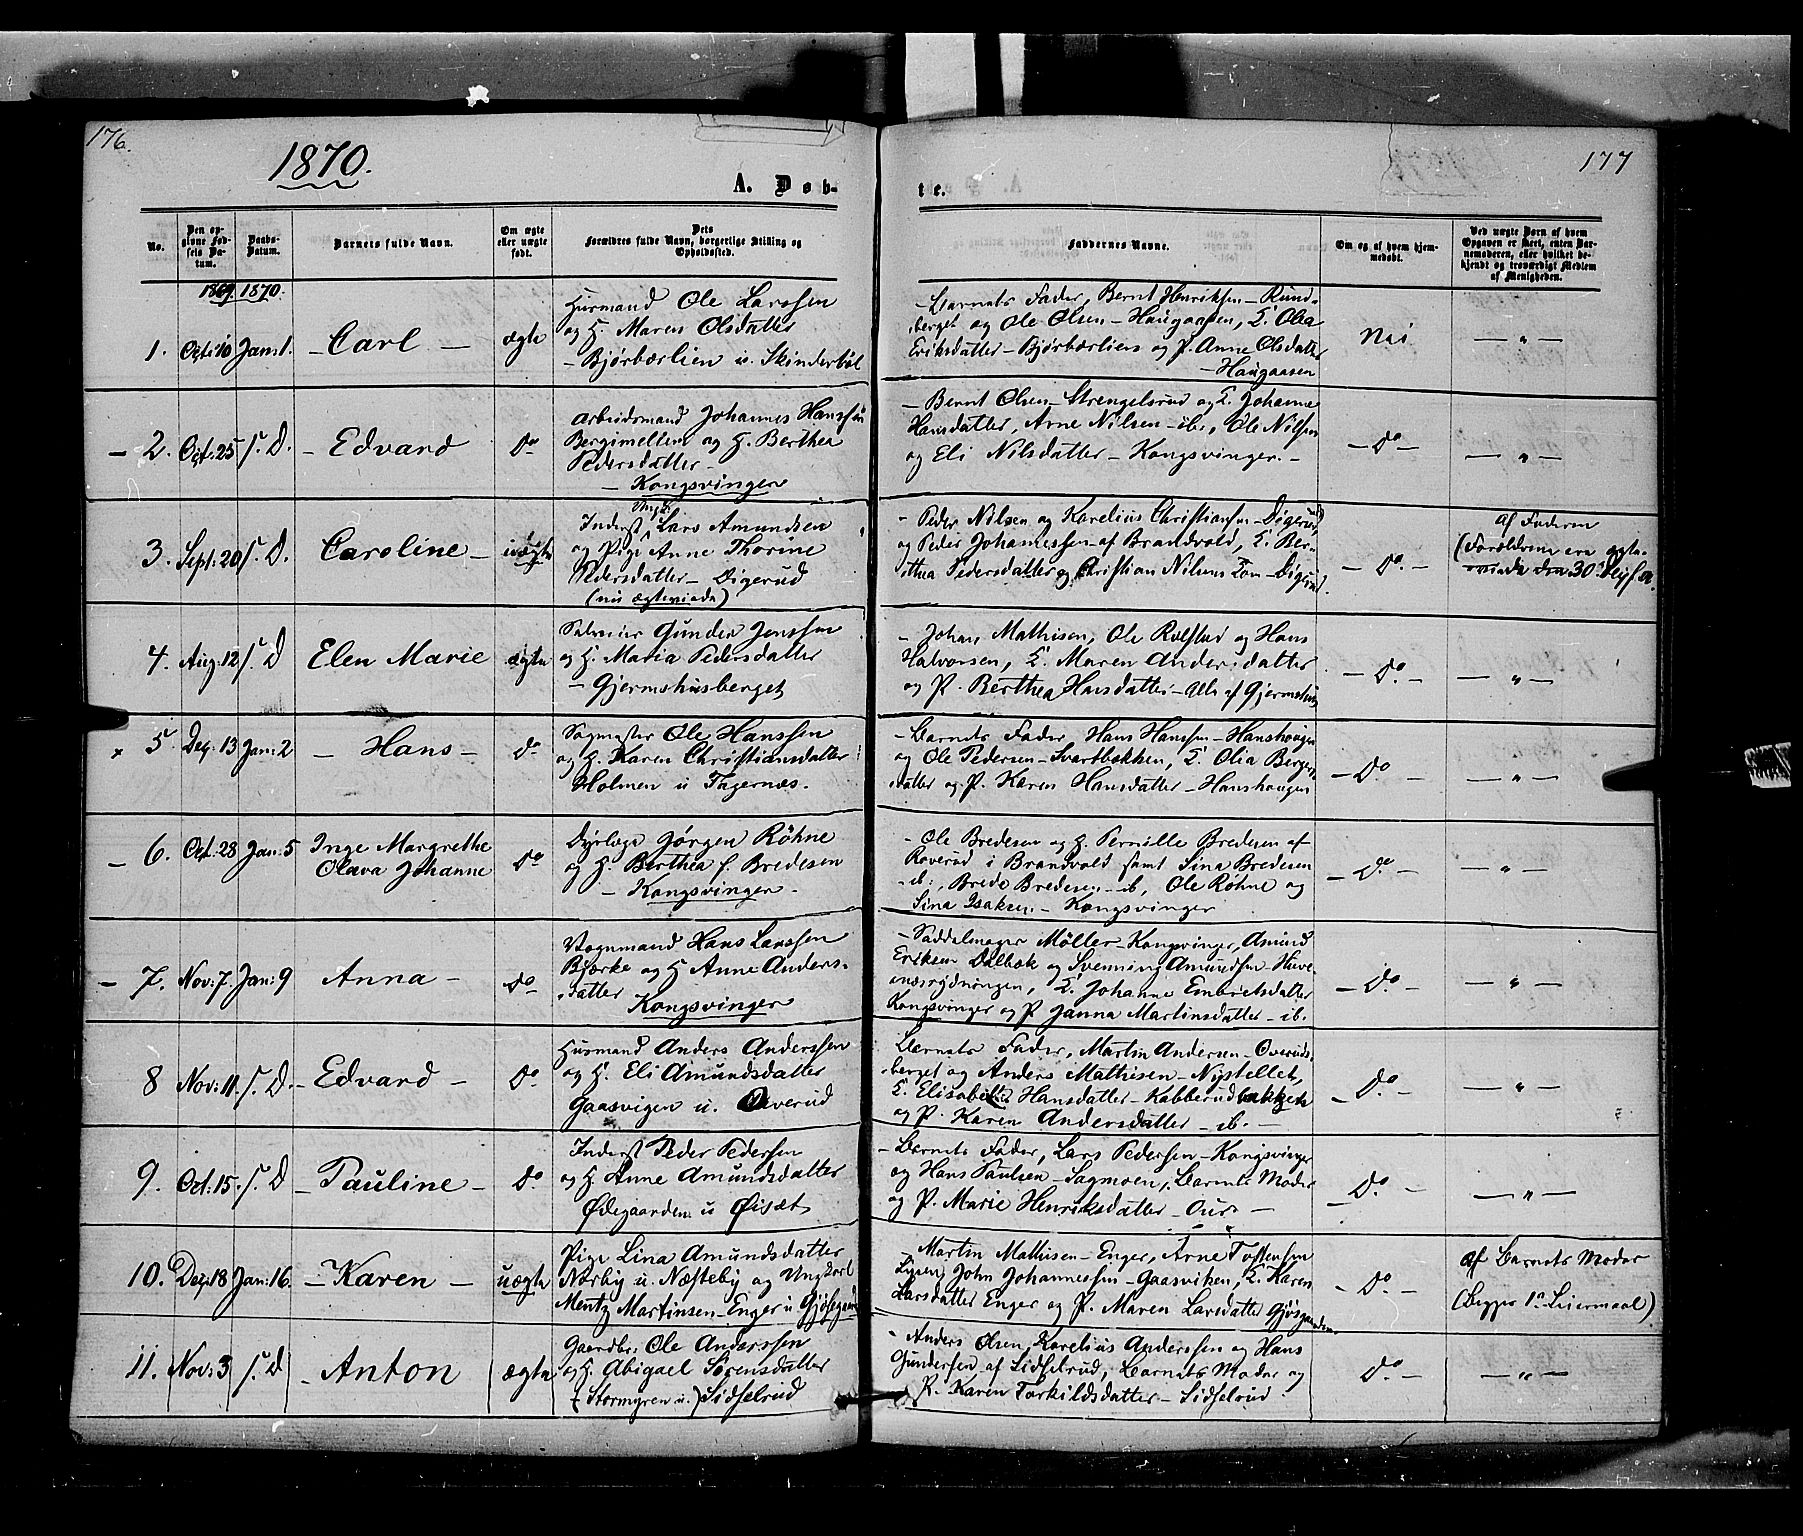 176.
1870.
A. Døb-
No.
Den op-
givne Fød-
sels Da-
tum.
Daabs-
Datum.
Barnets fulde Navn.
Om ægte
eller uægte
født.
Dets
Forældres fulde Navn, borgerlige Stilling og
Opholdssted.
1869. 1870.
1. Oct: 10 Jan: 1. – Carl – ægte
Husmand Ole Larssen
og H. Maren Olsdatter
– Bjørbærlien u. Skinderbøl
– 2. Oct: 25 s. D. – Edvard do
Arbeidsmand Johannes Hanssen
Bergimellem og H. Berthea
Pedersdatter –
– Kongsvinger
3. Sept: 20 s. D. Caroline – uægte
Ungk.
Inderst Lars Amundsen
og Pige Anne Thorine
Pedersdatter – Digerud
(nu ægteviede)
4. Aug: 12 s. D Elen Marie ægte
Gunder Jenssen
og H. Maria Pedersdatter
– Gjermshusberget
x 5. Dez: 13 Jan: 2 – Hans – do
Sagmester Ole Hanssen
og H. Karen Christiansdatter
Holmen u Tagernæs.
– 6. Oct. 28 Jan: 5 Inge Margrethe
Olava Johanne do
Dyrlæge Jørgen Røhne
og H. Berthea f. Bredesen
– Kongsvinger –
– 7. Nov: 7. Jan: 9 Anna – do
Vognmand Hans Larssen
Bjørke og H Anne Anders-
datter
Kongsvinger
8 Nov: 11. s. D. – Edvard – do
Husmand Anders Anderssen
og H. Eli Amundsdatter
Gaasvigen u. Overud
9. Oct: 15. s. D – Pauline – do
Inderst Peder Pedersen
og H Anne Amundsdatter
Ødegaarden u Øisæt
10. Dez: 18 Jan: 16. – Karen – uægte
Pige Lina Amundsdatter
Nørby u. Næsteby og Ungkarl
Mentz Martinsen – Enger u Gjøsegaard
11. Nov: 3 s. D – Anton ægte
Gaardbr: Ole Anderssen
og H. Abigael Sørensdatter
(Stormyren u.) Sidselrud
177
te.
Faddernes Navne.
Om og af hvem hjem-
medøbt.
Ved uægte Børn af hvem
Opgaven er skeet, enten Bar-
nemoderen, eller hvilket be-
kjendt og troværdigt Medlem
af Menigheden.
– Barnets Fader, Bernt Henriksen – Rund-
berget og Ole Olsen – Haugaasen, E. Olea
Eriksdatter – Bjørbærlien og P. Anne Olsdatter
– Haugaasen
Nei — " —
– Bernt Olsen – Strengelsrud og E. Johanne
Hansdatter, Arne Nilsen – ib., Ole Nilsen
og Eli Nilsdatter – Kongsvinger. –
– do – — " —
– Peder Nilsen og Karelius Christiansen – Digerud,
og Peder Johannessen – af Brandvold, E. Ber-
thea Pedersdatter og Christian Nilsens Kon – Digerud.
– do. –
af Faderen
(Forældrene ere ægte-
viede den 30
– Johan Mathisen, Ole Rolstad og Hans
Halvorsen, E. Maren Andersdatter
og P. Berthea Hansdatter – alle af Gjermshus
– do. – — " —
– Barnets Fader, Hans Hanssen – Hanshougen
og Ole Pedersen – Svartbækken, E. Olia Bergers-
datter og P. Karen Hansdatter – Hanshougen
– do – — " —
– Ole Bredesen og H. Pernille Bredesen af
Roverud i Brandvold samt Lina Bredesen
– ib:, Brede Bredesen – ib, Ole Røhne og
Lina Isaksen – Kongsvinger
– do – — " —
– Saddelmager Møller – Kongsvinger, Amund
Eriksen Dalbæk og Svenning Amundsen – Huve-
næsrydningen, E. Johanne Embretsdatter
Kongsvinger og P Janna Martinsdatter – ib.
– do. – — " —
Barnets Fader, Martin Andersen – Overuds-
berget og Anders Mathisen – Nystellet,
E. Elisabeth Hansdatter – Kabberudbakken
og P. Karen Andersdatter – ib. –
– do. – — " —
– Barnets Fader, Lars Pedersen – Kongsvinger
og Hans Paulsen – Sagmoen, Barnets Moder
og P. Marie Henriksdatter – Our –
– do. – — " —
– Martin Mathisen – Enger, Arne Tostensen
Lysen, John Johannessen – Gaasviken, E. Karen
Larsdatter Enger og P. Maren Larsdatter Gjøsgaarden.
– do. –
af Barnets Moder
(Begges 1ste Leiermaal)
– Anders Olsen, Karelius Anderssen og Hans
Gundersen af Sidselrud, Barnets Moder og
P. Karen Torkildsdatter – Sidselrud.
do. – — " —